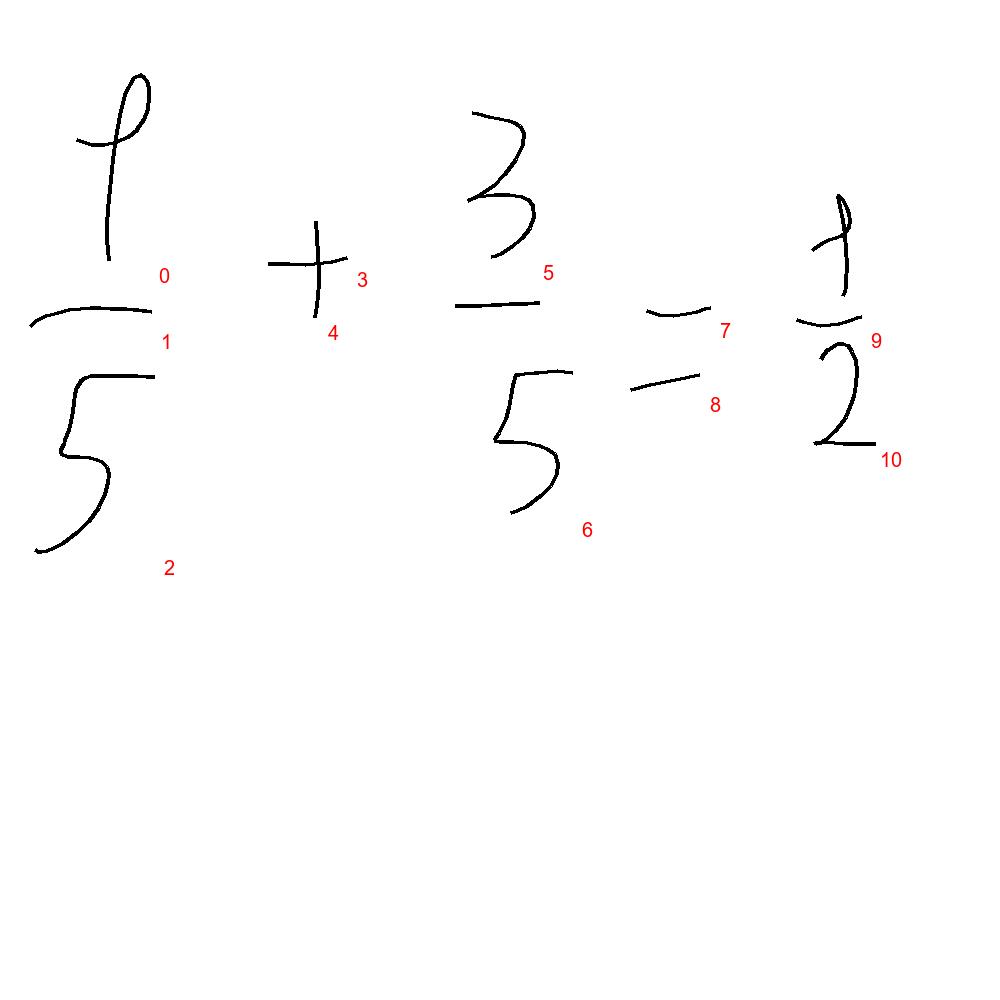 1/5 + 3/5 = 1/2
0 1 2 3 4 5 6 7 8 9 10